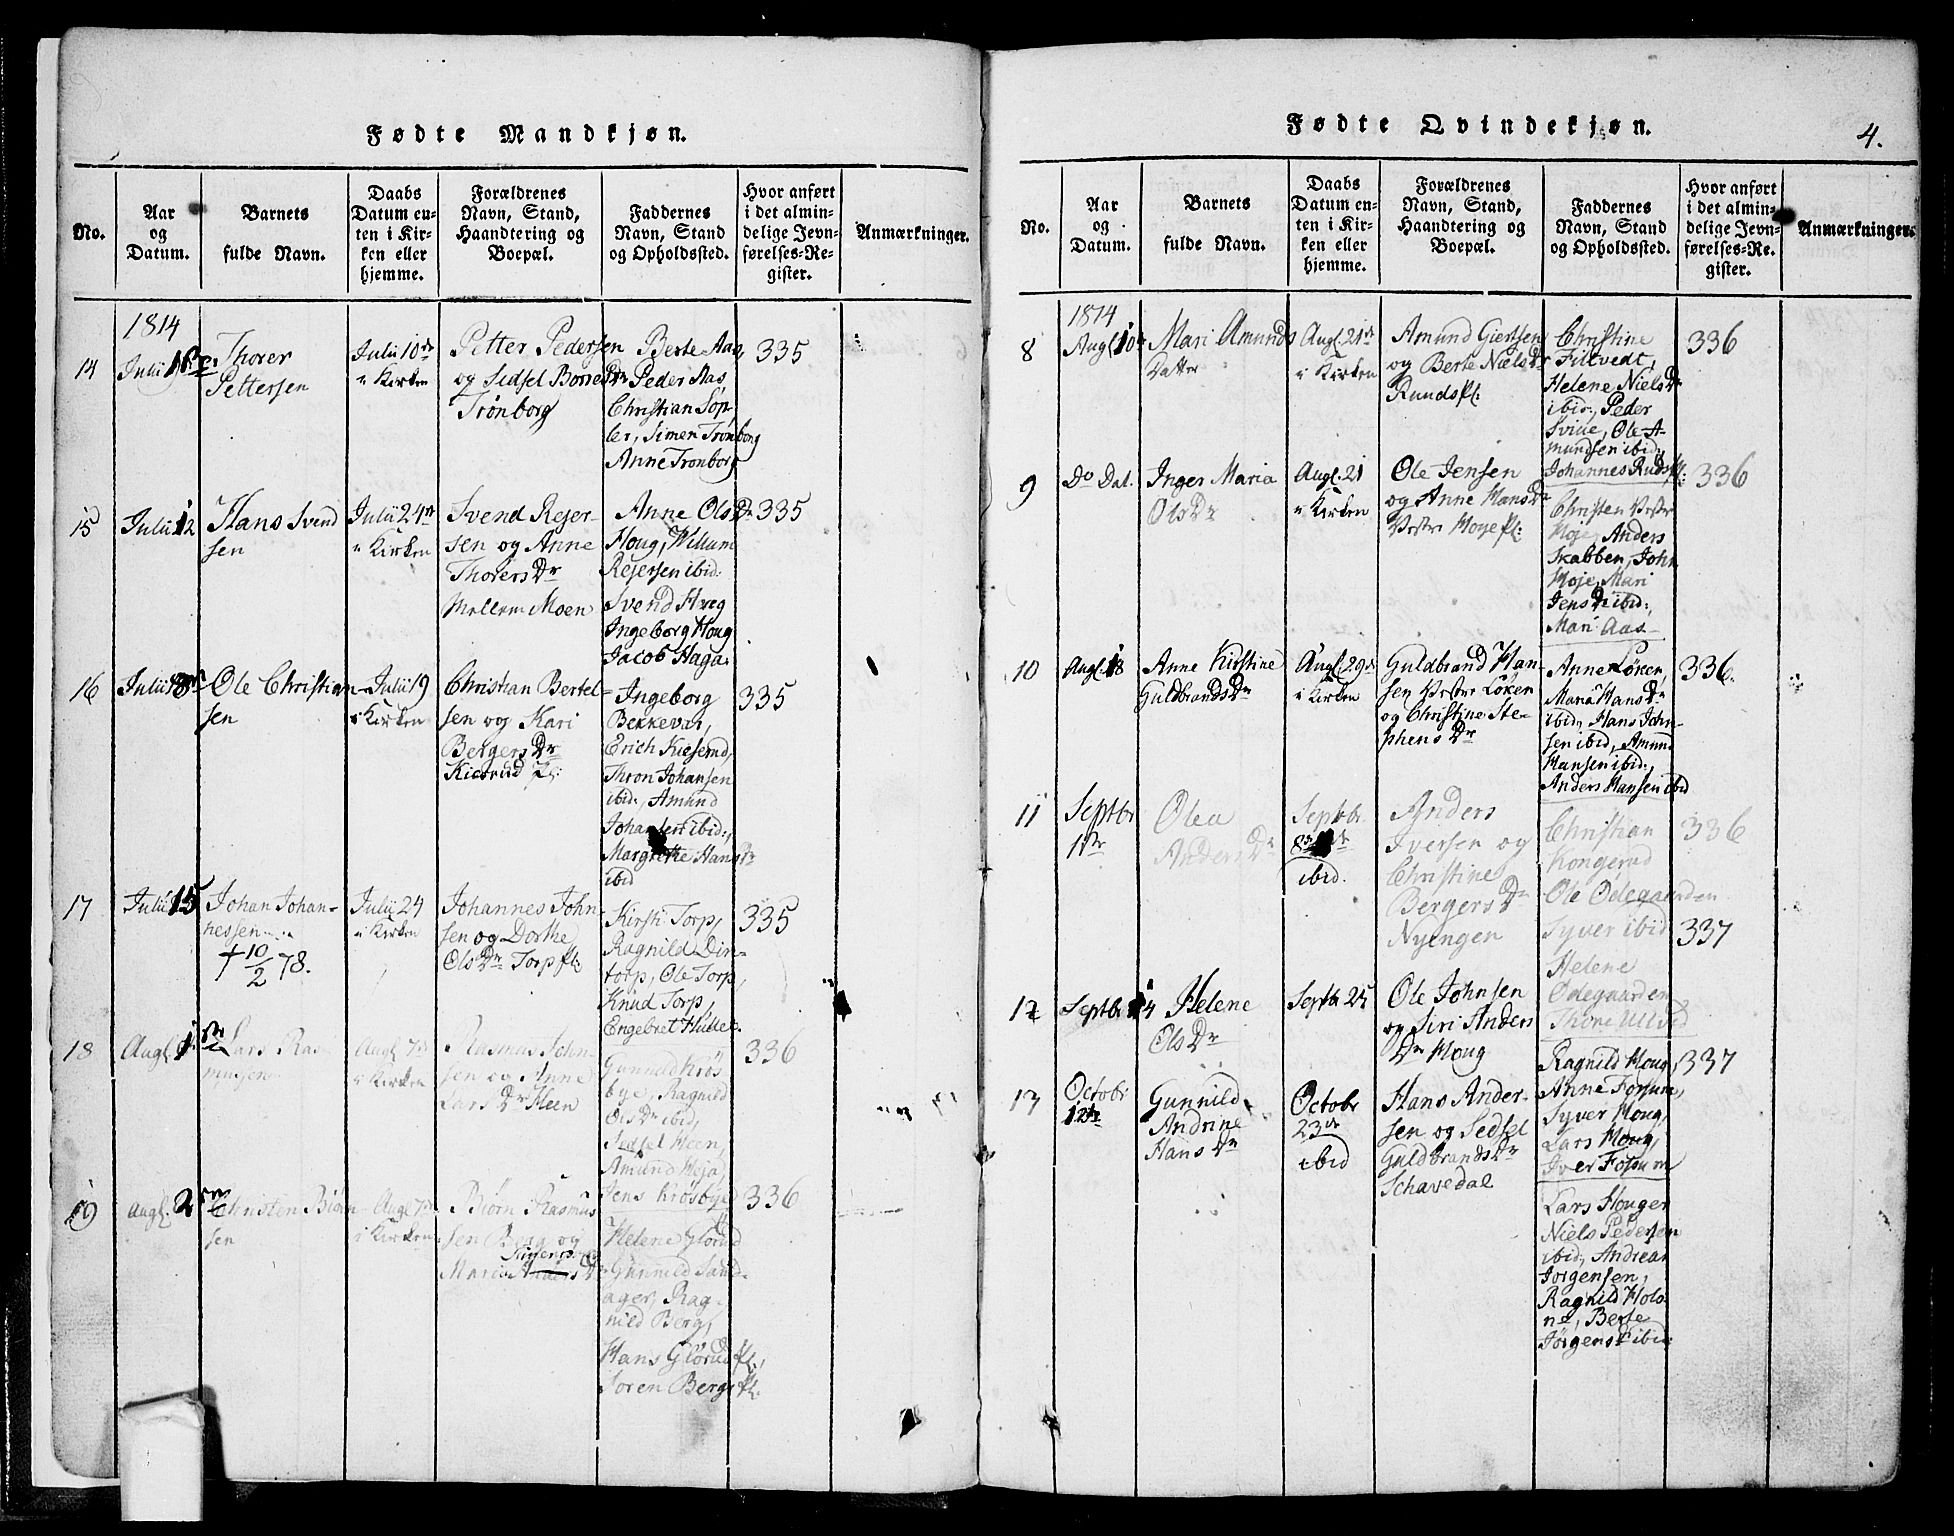 Fødte Mandkjøn.
No.
Aar
og
Datum.
Barnets
fulde Navn.
Daabs
Datum en-
ten i Kir-
ken eller
hjemme.
Forældrenes
Navn, Stand,
Haandtering og
Boepæl.
Faddernes
Navn, Stand
og Opholdssted.
Hvor anført
i det almin-
delige Jevn-
førelses-Re-
gister.
Anmærkninger.
1814
14
Julii
Thorer
Pettersen
Julii 10de
i Kirken
Petter Pedersen
og Sidsel Borres Dr
Trønborg
Berte Aas,
Peder Aas,
Christian Søp
ler, Simen Tronborg
Anne Tronborg
335
15
Julii 12
Hans Svend
sen
Julii 24de
i Kirken
Svend Rejer-
sen og Anne
Thorers Dr
Mellem Moen
Anne Ols Dr
Houg, Willum
Rejersen ibid:
Svend Hæg
Ingeborg Houg
Jacob Haga
335
16
Julii
Ole Christian-
sen
Julii 19
i Kirken
Christian Bertel-
sen og Kari
Bergers Dr
Kiesrud Pl:
Ingeborg
Bekkevar,
Erich Kieserud,
Thron Johansen
ibid:, Amund
Johansen ibid:,
Margrethe Hans Dr
ibid
335
17
Julii 15
Johan Johan-
nessen
† 10/2 78.
Julii 24
i Kirken
Johannes John-
sen og Dorthe
Ols Dr Torp Pl:
Kirsti Torp,
Ragnild Din-
torp, Ole Torp,
Knud Torp,
Engebret Hulle.
335
18
Augl. 1
Lars Ras-
musen
Augl 7de
i Kirken
Rasmus John-
sen og Anne
Lars Dr Heen
Gunnild Krøs
bye, Ragnild
Ols Dr ibid,
Sidsel Heen,
Amund Heja,
Jens Krosbye
336
19
Augl. 2
Christen Biørn-
sen
Augl 7de
i Kirken
Biørn Rasmus
sen Berg og
Maria Anders Dr
Helene Glorud
Gunnild Sand-
ager, Rag-
nild Berg,
Hans Glorud Pl.,
Soren Bergs Pl.
336
Fødte Qvindekjøn.
4.
No.
Aar
og
Datum.
Barnets
fulde Navn.
Daabs
Datum en-
ten i Kir-
ken eller
hjemme.
Forældrenes
Navn, Stand,
Haandtering og
Boepæl.
Faddernes
Navn, Stand
og Opholdssted.
Hvor anført
i det almin-
delige Jevn-
førelses-Re-
gister.
Anmærkninger.
1814
8
Augl 10
Mari Amunds
Datter
Augl. 21de
i Kirken
Amund Giertsen
og Berte Niels Dr
Runds Pl:
Christine
Filtvedt,
Helene Niels Dr
ibid:, Peder
Svine, Ole A-
mundsen ibid:
Johannes Ruds Pl:
336
9
Do Dat.
Inger Maria
Ols Dr
Augl. 21
i Kirken
Ole Jensen
og Anne Hans Dr
Vestre Hoye Pl:
Christen Vestre
Hoje, Anders
Skabben, John
Hoje, Mari
Jens Dr ibid:,
Mari Aas
336
10
Augl. 18
Anne Kirstine
Guldbrands Dr
Augl. 29de
i Kirken
Guldbrand Han-
sen Vestre Løken
og Christine Ste-
phens Dr
Anne Løken,
Maria Hans Dr
ibid, Hans John-
sen ibid, Amund
Hansen ibid:,
Anders Hansen ibid
336.
11
Septbr
1ste
Olea
Anders Dr
Septbr.
ibid.
Anders
Iversen og
Christine
Bergers Dr
Nyengen
Christian
Kongerud
Ole Ødegaarden
Syver ibid
Helene
Ødegaarden
Thone Ulsvd
336
337
12
Septbr 14
Helene
Ols Dr
Septbr 25
Ole Johnsen
og Siri Anders
Dr Houg
Ragnild Houg,
Anne Fossum,
Syver Houg,
Lars Houg,
Iver Fossum
337
13
Octobr
12te
Gunnild
Andrine
Hans Dr
Octobr
23de
ibid
Hans Ander-
sen og Sedsel
Guldbrands Dr
Schavedal
Lars Houger
Niels Pedersen
ibid, Andreas
Jorgensen,
Ragnild Holo-
na, Berte
Jørgens ibid: